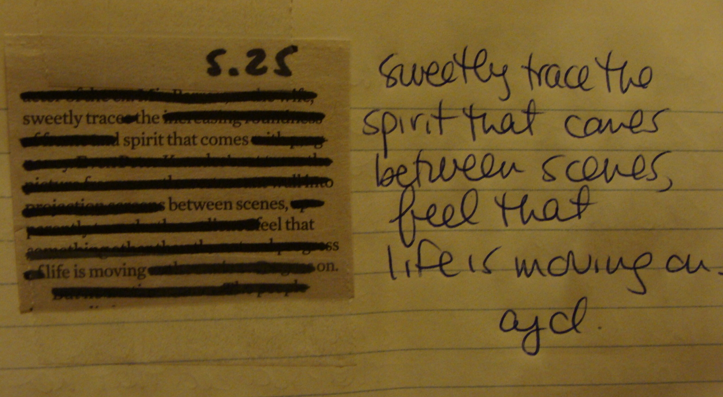 5.25
sweetly trace the
spirit that comes
between scenes,
feel that
life is moving on.
sweetly trace the
spirit that comes
between scenes,
feel that
life is moving on.
ajd.